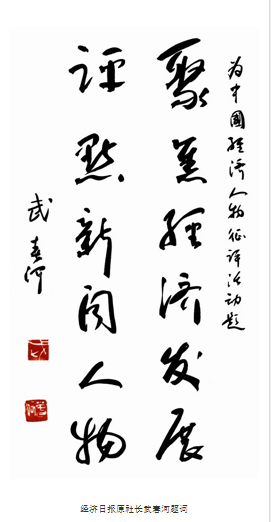 为中國经济人物征评活动题
聚焦经济发展
评點新闻人物
武春河
经济日报原社长武春河题词